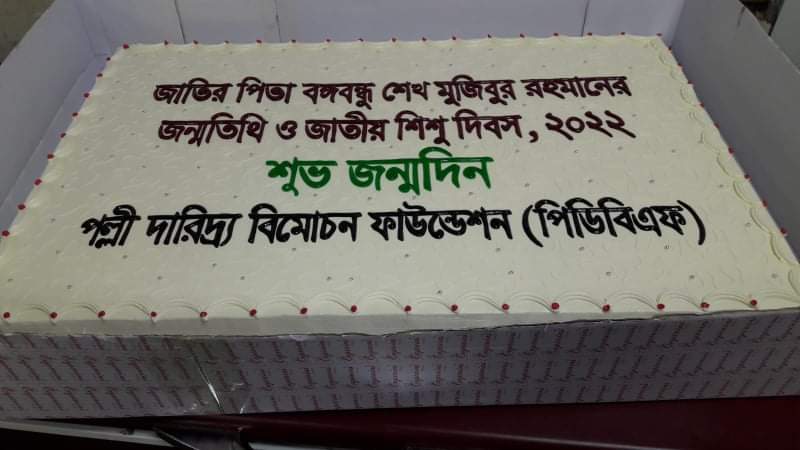 জাতির পিতা বঙ্গবন্ধু শেখ মুজিবুর রহমানের
জন্মতিথি ও জাতীয় শিশু দিবস, ২০২২
শুভ জন্মদিন
পল্লী দারিদ্র্য বিমোচন ফাউন্ডেশন (পিডিবিএফ)